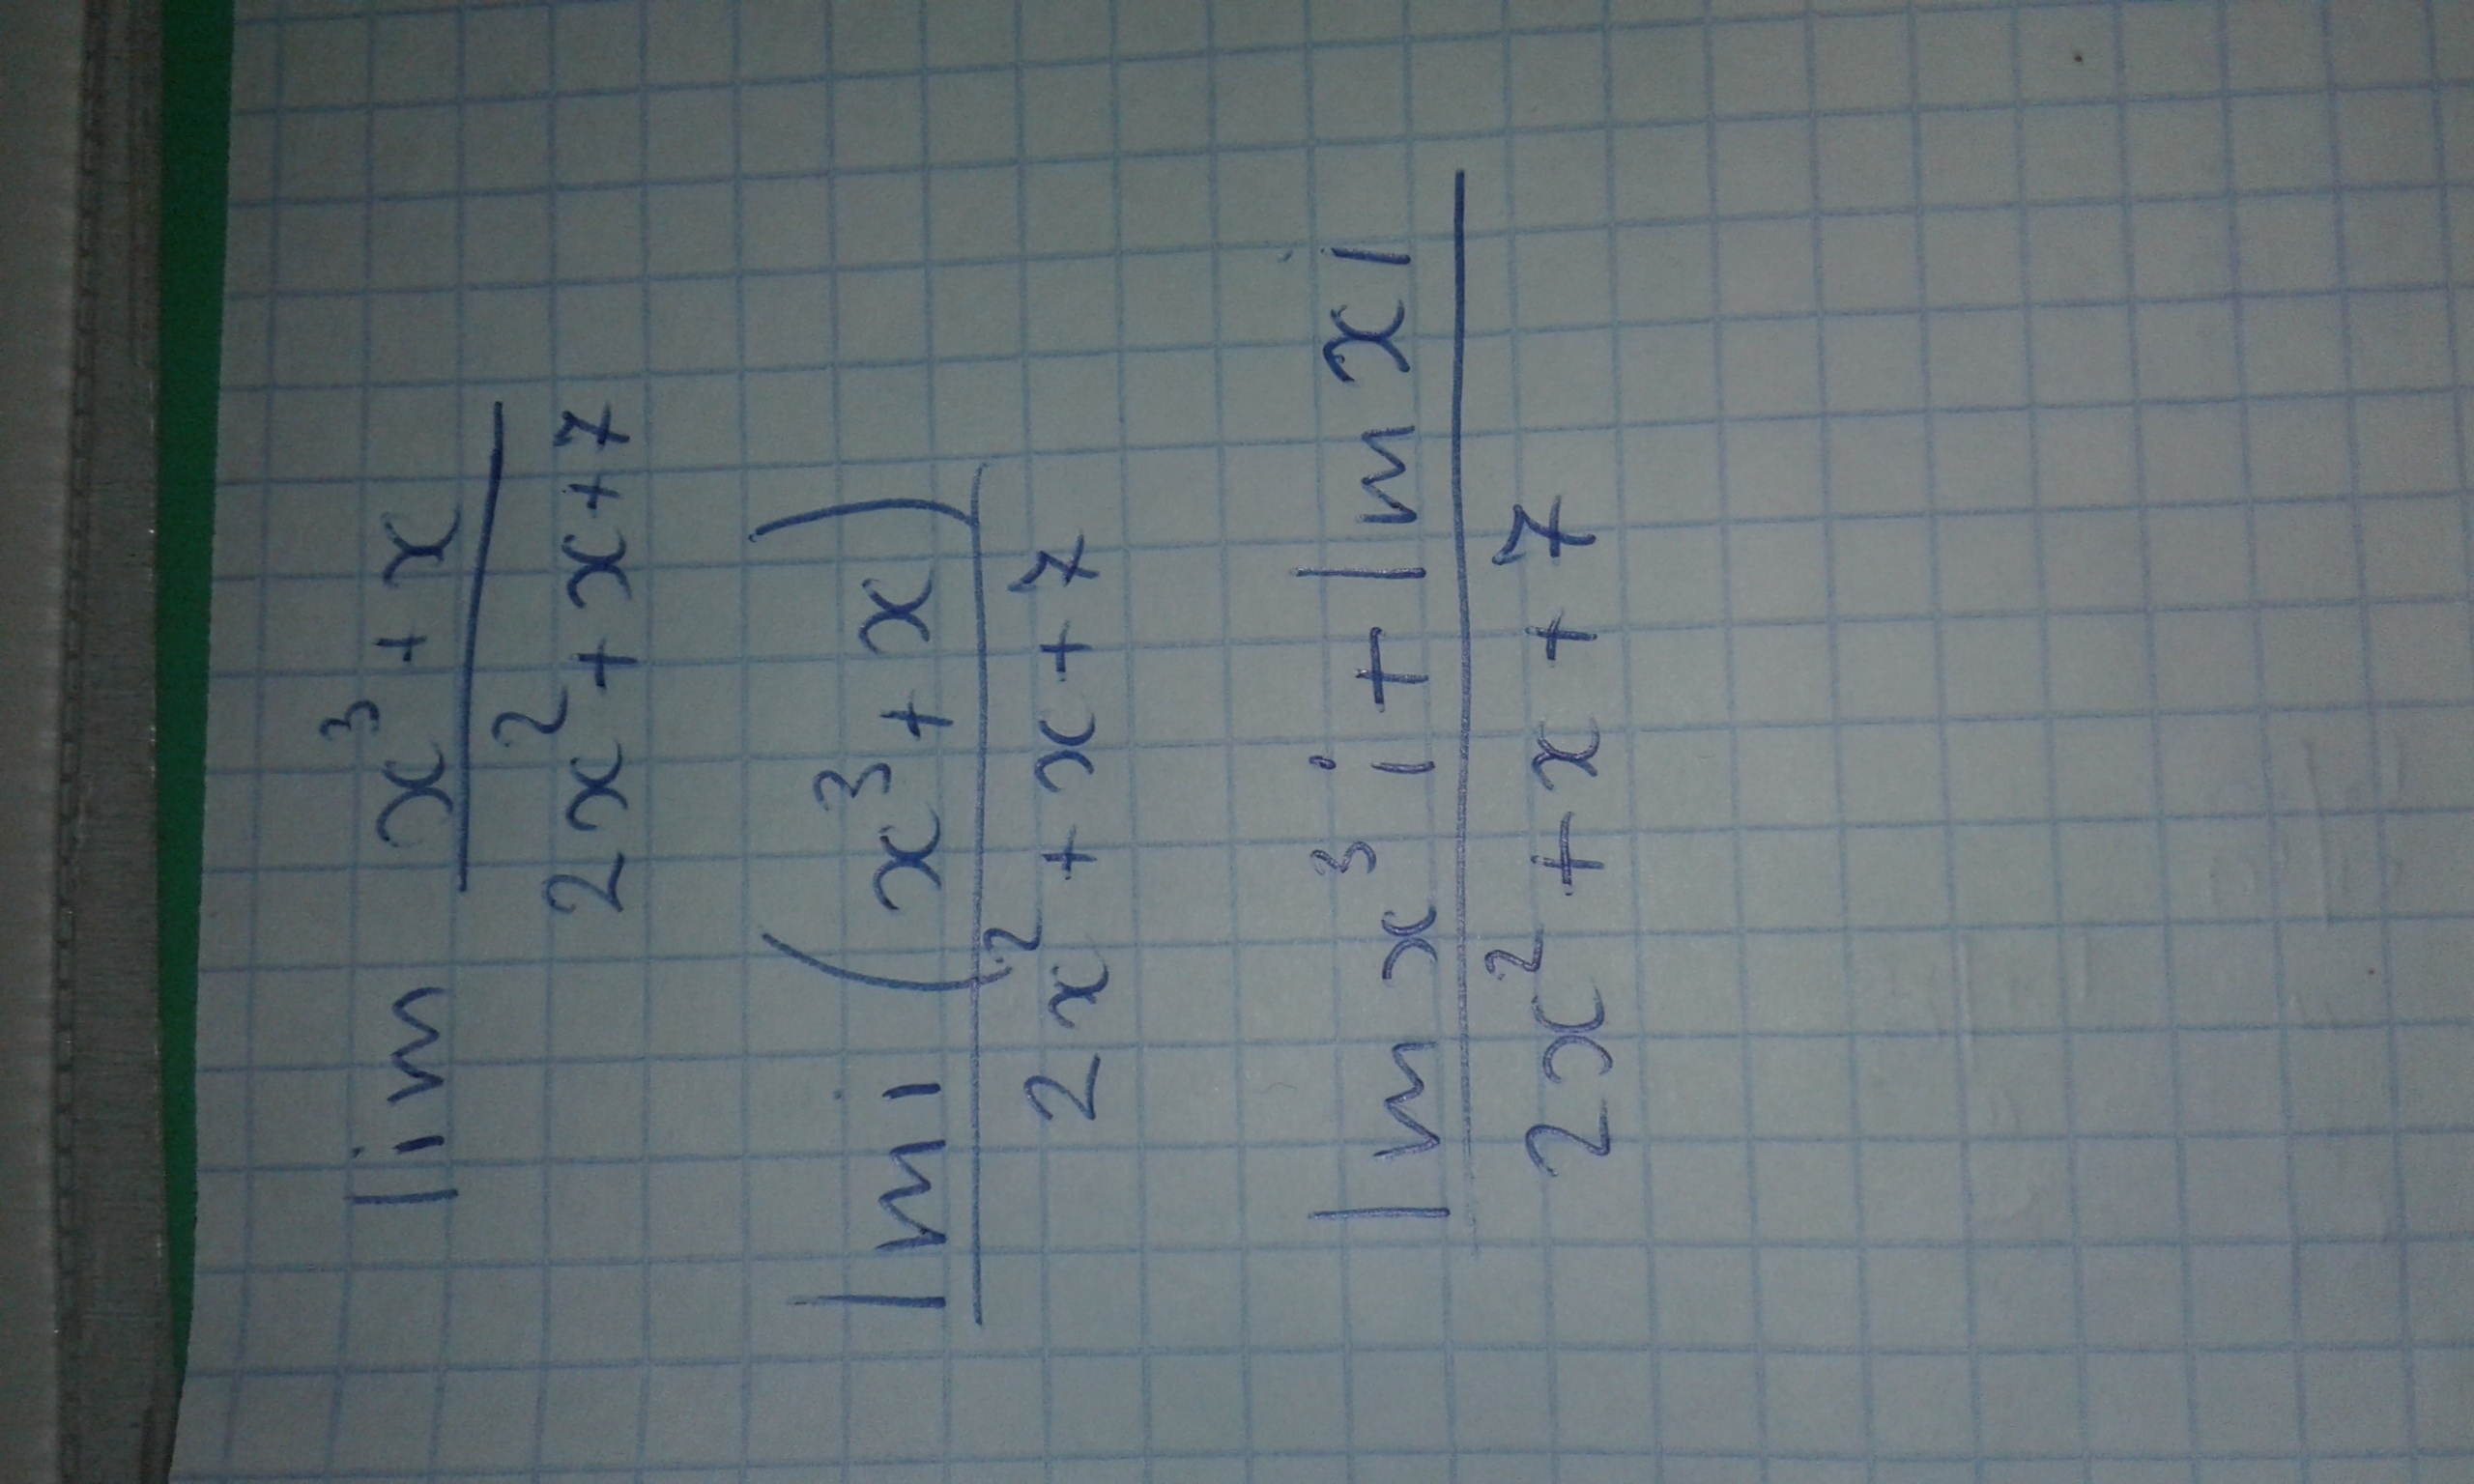 lim x³ + x
2x² + x + 7
lmi (x³ + x)
2x² + x + 7
lmx³i + lmxi
2x² + x + 7